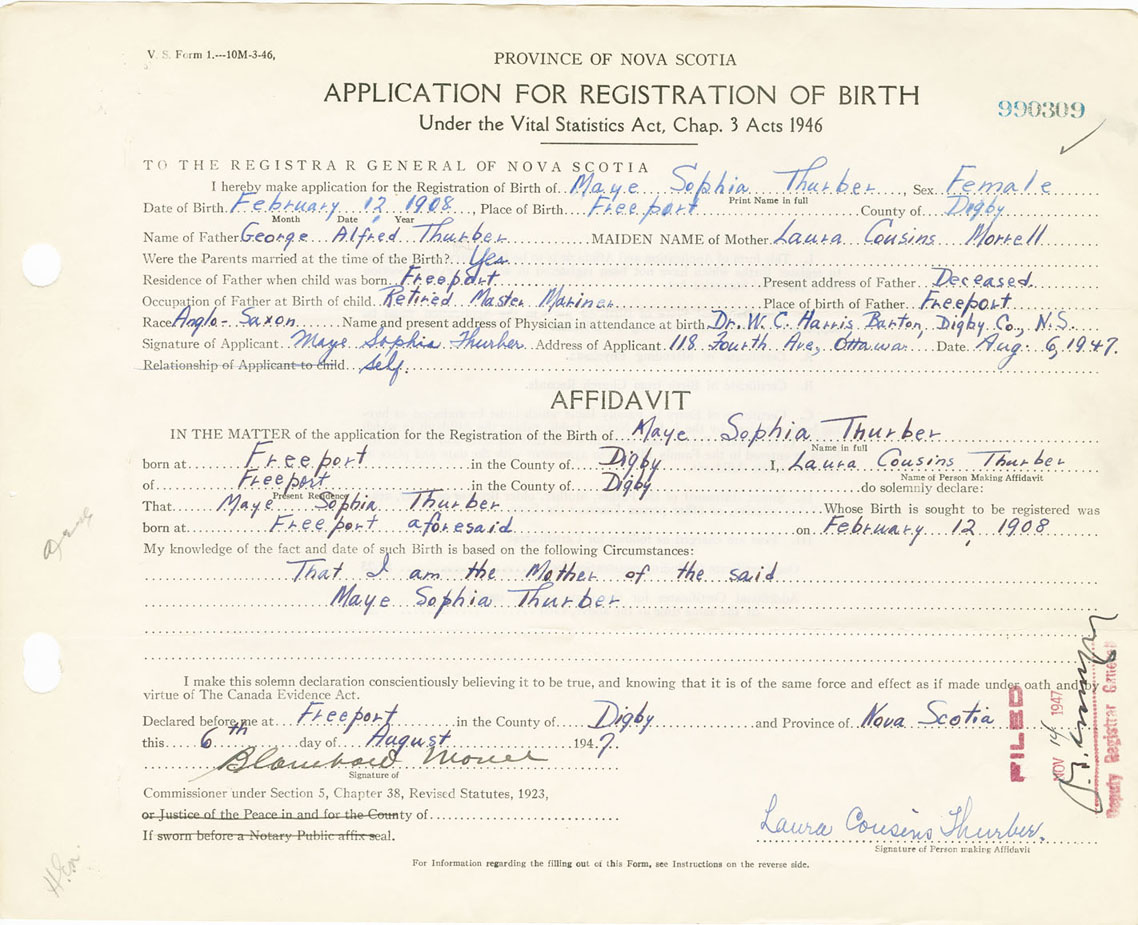 V. S. Form 1.---10M-3-46,
PROVINCE OF NOVA SCOTIA
APPLICATION FOR REGISTRATION OF BIRTH
990309
Under the Vital Statistics Act, Chap. 3 Acts 1946
TO THE REGISTRAR GENERAL OF NOVA SCOTIA
I hereby make application for the Registration of Birth of Maye Sophia Thurber, Sex Female
Print Name in full
Date of Birth February 12 1908, Place of Birth Freeport County of Digby
Month Date Year
Name of Father George Alfred Thurber MAIDEN NAME of Mother Laura Cousins Morrell
Were the Parents married at the time of the Birth? Yes
Residence of Father when child was born Freeport Present address of Father Deceased
Occupation of Father at Birth of child Retired Master Mariner Place of birth of Father Freeport
Race Anglo-Saxon Name and present address of Physician in attendance at birth Dr. W. C. Harris Barton, Digby Co., N.S.
Signature of Applicant Maye Sophia Thurber Address of Applicant 118 Fourth Ave, Ottawa Date Aug. 6, 1947.
Relationship of Applicant to child self.
AFFIDAVIT
IN THE MATTER of the application for the Registration of the Birth of Maye Sophia Thurber
Name in full
born at Freeport in the County of Digby I, Laura Cousins Thurber
Name of Person Making Affidavit
of Freeport in the County of Digby do solemnly declare:
Present Residence
That Maye Sophia Thurber Whose Birth is sought to be registered was
born at Freeport aforesaid on February 12, 1908
My knowledge of the fact and date of such Birth is based on the following Circumstances:
That I am the Mother of the said
Maye Sophia Thurber
I make this solemn declaration conscientiously believing it to be true, and knowing that it is of the same force and effect as if made under oath and by
virtue of The Canada Evidence Act.
Declared before me at Freeport in the County of Digby and Province of Nova Scotia
this 6th day of August 1947.
Signature of
Commissioner under Section 5, Chapter 38, Revised Statutes, 1923,
or Justice of the Peace in and for the County of
If sworn before a Notary Public affix seal.
Laura Cousins Thurber.
Signature of Person making Affidavit
For Information regarding the filling out of this Form, see Instructions on the reverse side.
FILED
NOV 14 1947
Deputy Registrar General